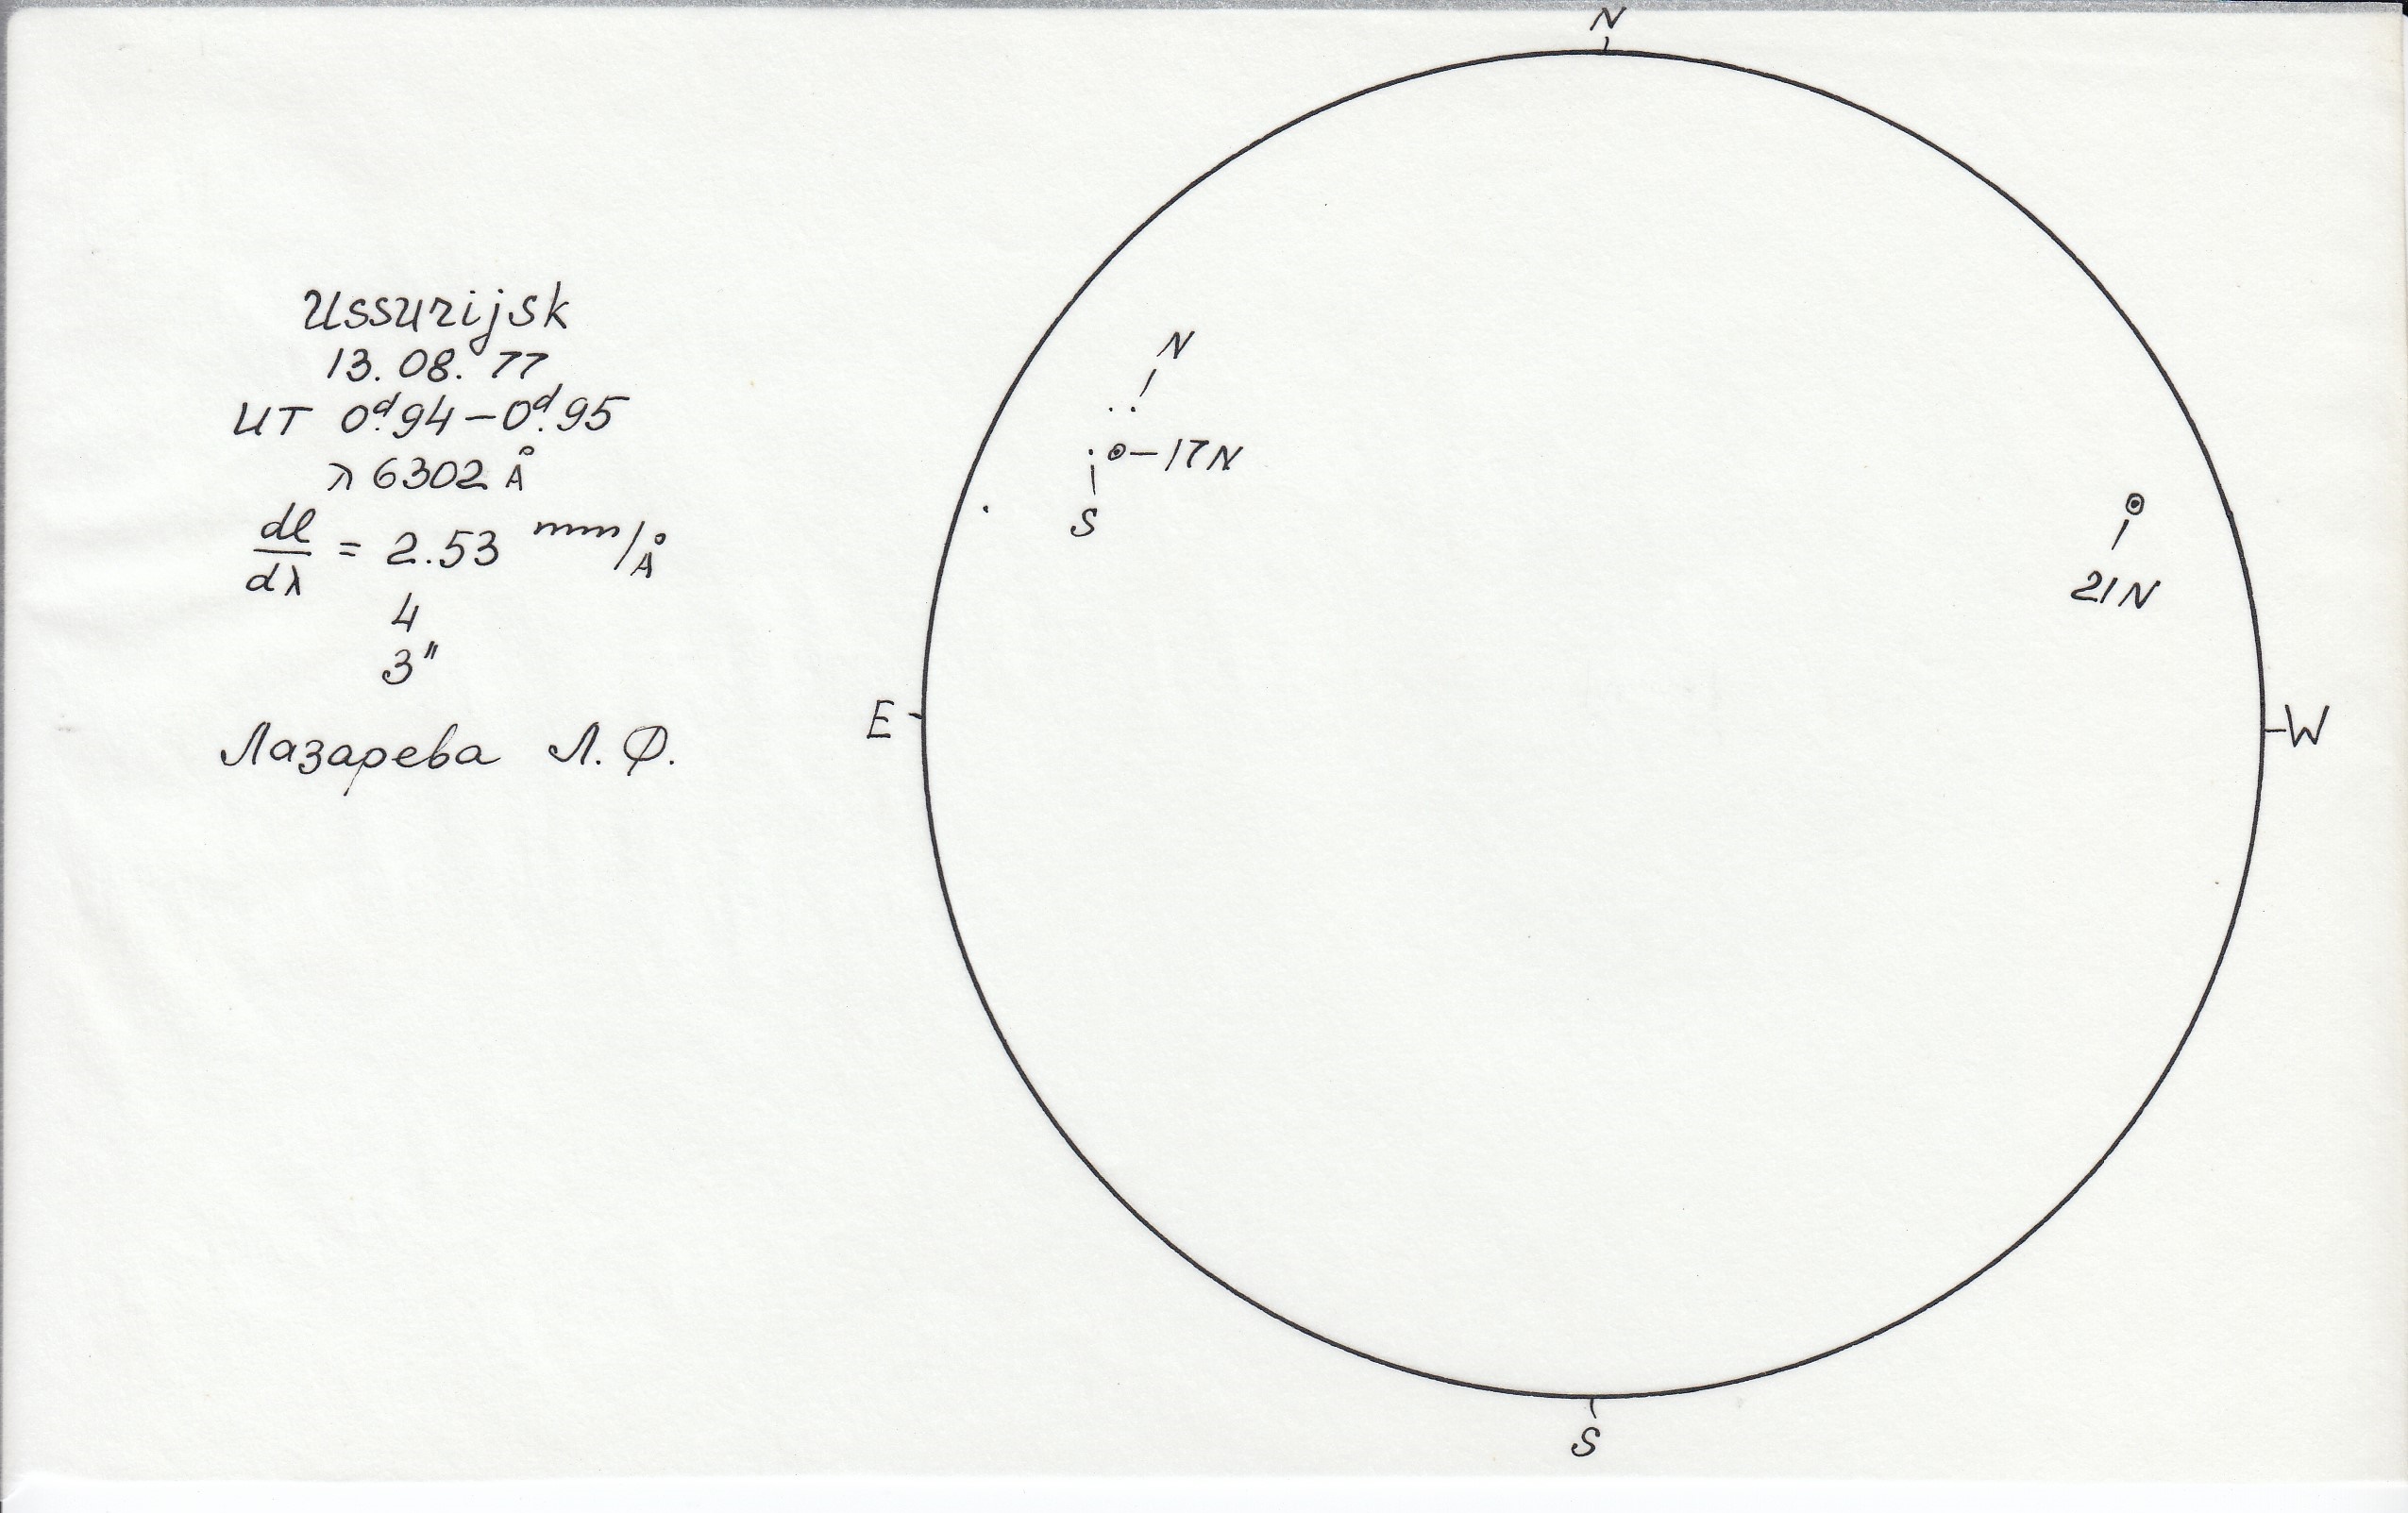 Ussurijsk
13.08.77
UT 0ᵈ.94–0ᵈ.95
λ 6302 Å
dl/dλ = 2.53 mm/Å
4
3"
Лазарева Л.Ф.
N
N
17N
S
21N
E
W
S